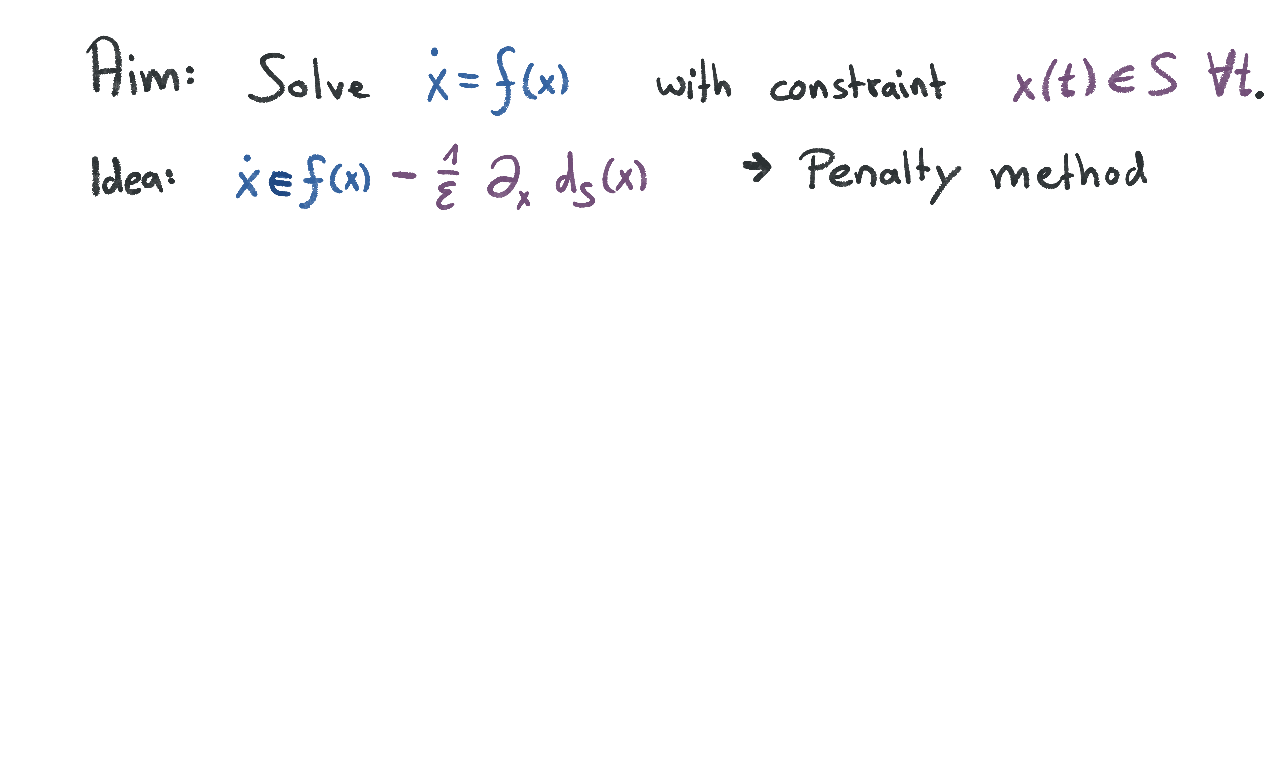 Aim: Solve ẋ = f(x) with constraint x(t) ∈ S ∀t.
Idea: ẋ ∈ f(x) − 1/ε ∂ₓ d_S(x) → Penalty method